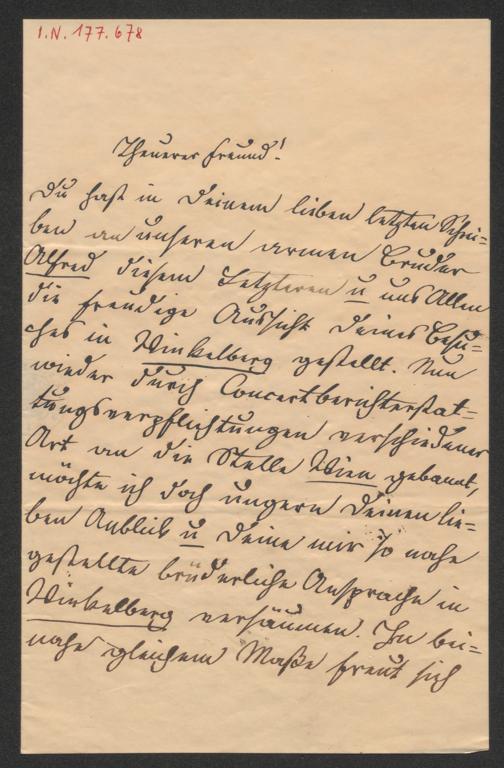 I.N. 177.678
Theuerer Freund!
Du hast in Deinem lieben letzten Schrei=
ben an unseren armen Bruder
Alfred diesem Letzteren u uns Allen
die freudige Aussicht Deines Besu=
ches in Winkelberg gestellt. Nun
wieder durch Concertberichterstat=
tungsverpflichtungen verschiedener
Art an die Stelle Wien gebannt,
möchte ich doch ungern Deinen lie=
ben Anblick u Deine mir so nahe
gestellte brüderliche Ansprache in
Winkelberg versäumen. In bei=
nahe gleichem Maße freut sich